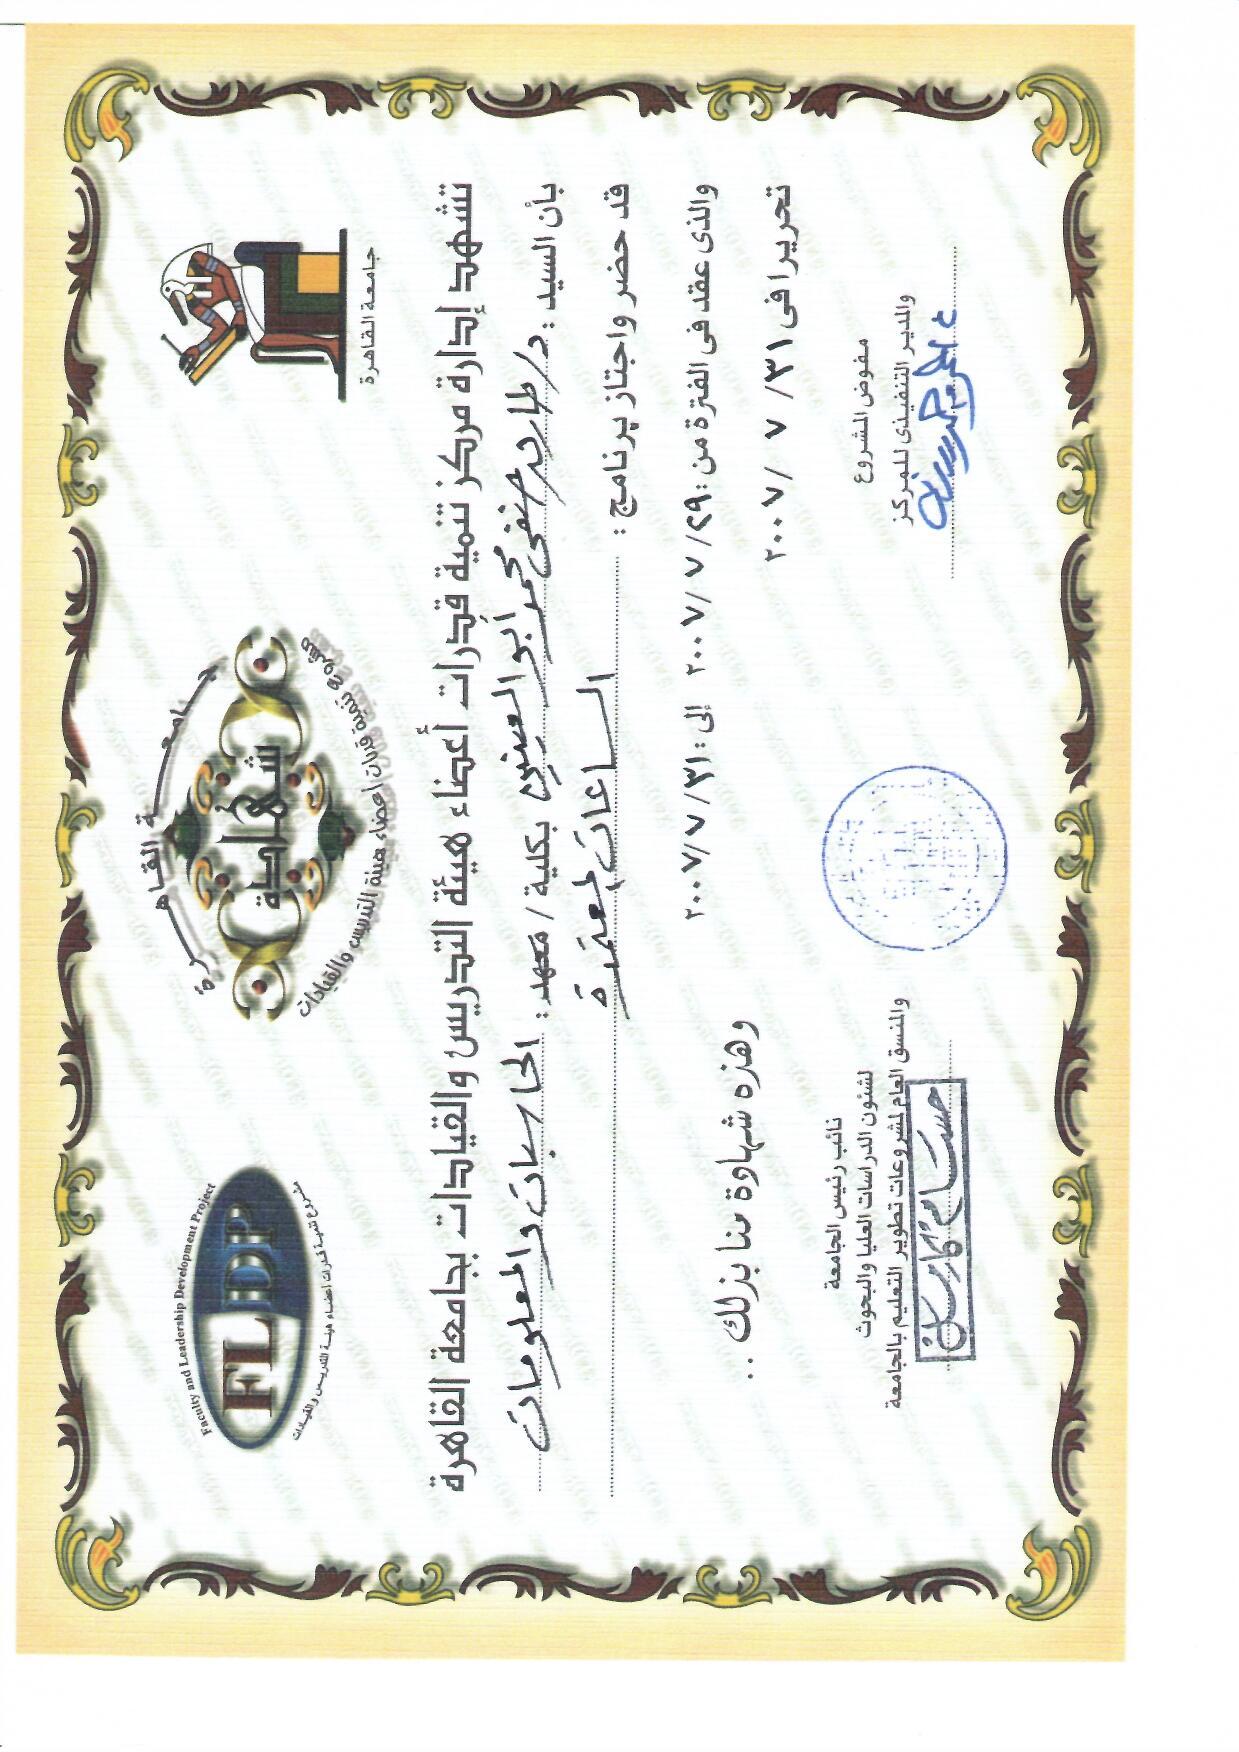 جامعة القاهرة
جامعة القاهرة
شهادة
مشروع تنمية قدرات أعضاء هيئة التدريس والقيادات
Faculty and Leadership Development Project
FLDP
مشروع تنمية قدرات أعضاء هيئة التدريس والقيادات
تشهد إدارة مركز تنمية قدرات أعضاء هيئة التدريس والقيادات بجامعة القاهرة
بأن السيد : د/ طارق محمد أبو العينين بكلية / معهد : الحاسبات والمعلومات
قد حضر واجتاز برنامج : الساعات المعتمدة
والذى عقد فى الفترة من : ٢٩ / ٧ / ٢٠٠٧ إلى : ٣١ / ٧ / ٢٠٠٧
تحريرا فى ٣١ / ٧ / ٢٠٠٧
وهذه شهادة منا بذلك ..
مفوض المشروع
والمدير التنفيذى للمركز
نائب رئيس الجامعة
لشئون الدراسات العليا والبحوث
والمنسق العام لمشروعات تطوير التعليم بالجامعة